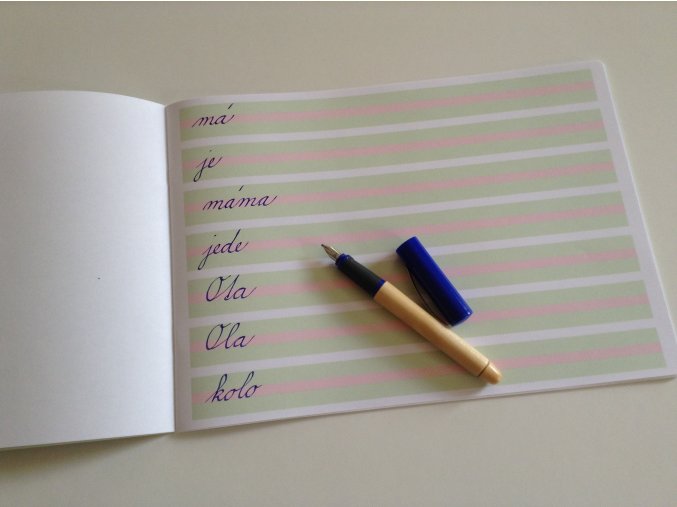 má
je
máma
jede
Ota
Ola
kolo